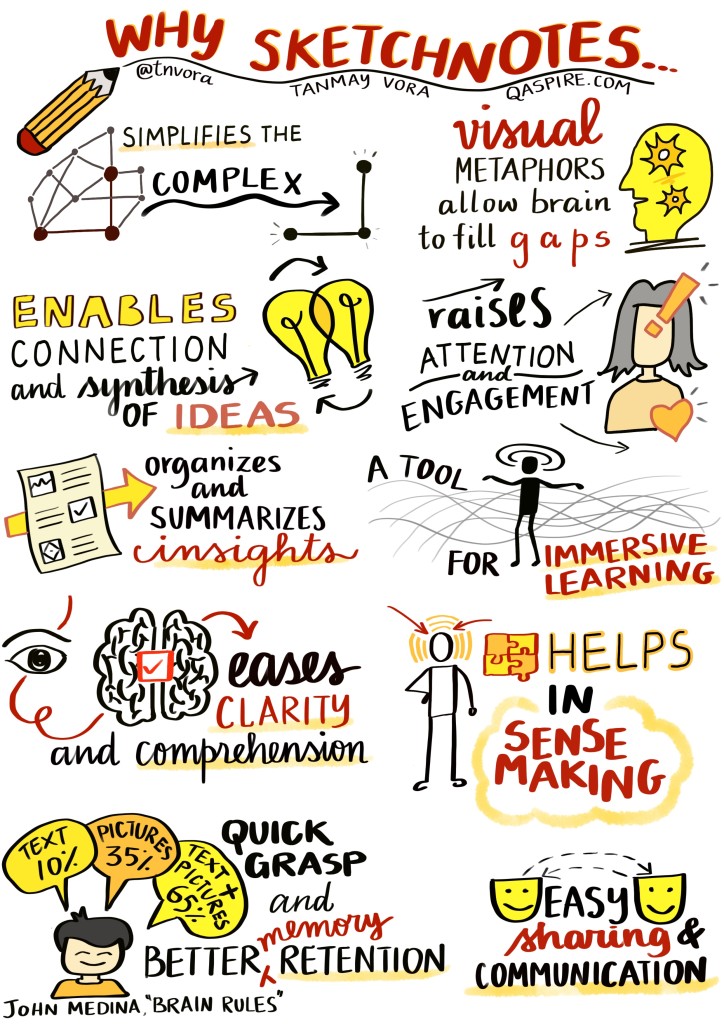 WHY SKETCHNOTES...
@tnvora TANMAY VORA QASPIRE.COM
SIMPLIFIES THE
COMPLEX
visual
METAPHORS
allow brain
to fill gaps
ENABLES
CONNECTION
and synthesis
OF IDEAS
raises
ATTENTION
and
ENGAGEMENT
organizes
and
SUMMARIZES
insights
A TOOL
FOR IMMERSIVE
LEARNING
eases
CLARITY
and comprehension
HELPS
IN
SENSE
MAKING
TEXT
10%
PICTURES
35%
TEXT +
PICTURES
65%
QUICK
GRASP
and
memory
BETTER RETENTION
JOHN MEDINA, "BRAIN RULES"
EASY
sharing &
COMMUNICATION